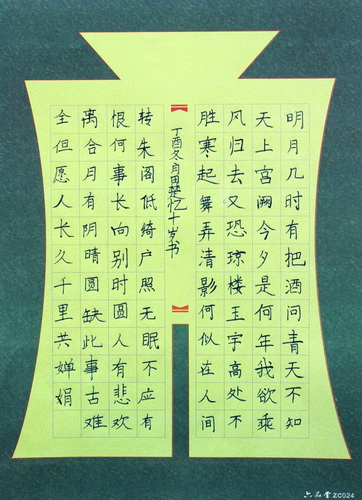 明月几时有把酒问青天不知
天上宫阙今夕是何年我欲乘
风归去又恐琼楼玉宇高处不
胜寒起舞弄清影何似在人间
丁酉冬月田楚忆十岁书
转朱阁低绮户照无眠不应有
恨何事长向别时圆人有悲欢
离合月有阴晴圆缺此事古难
全但愿人长久千里共婵娟
六品堂 ZC024